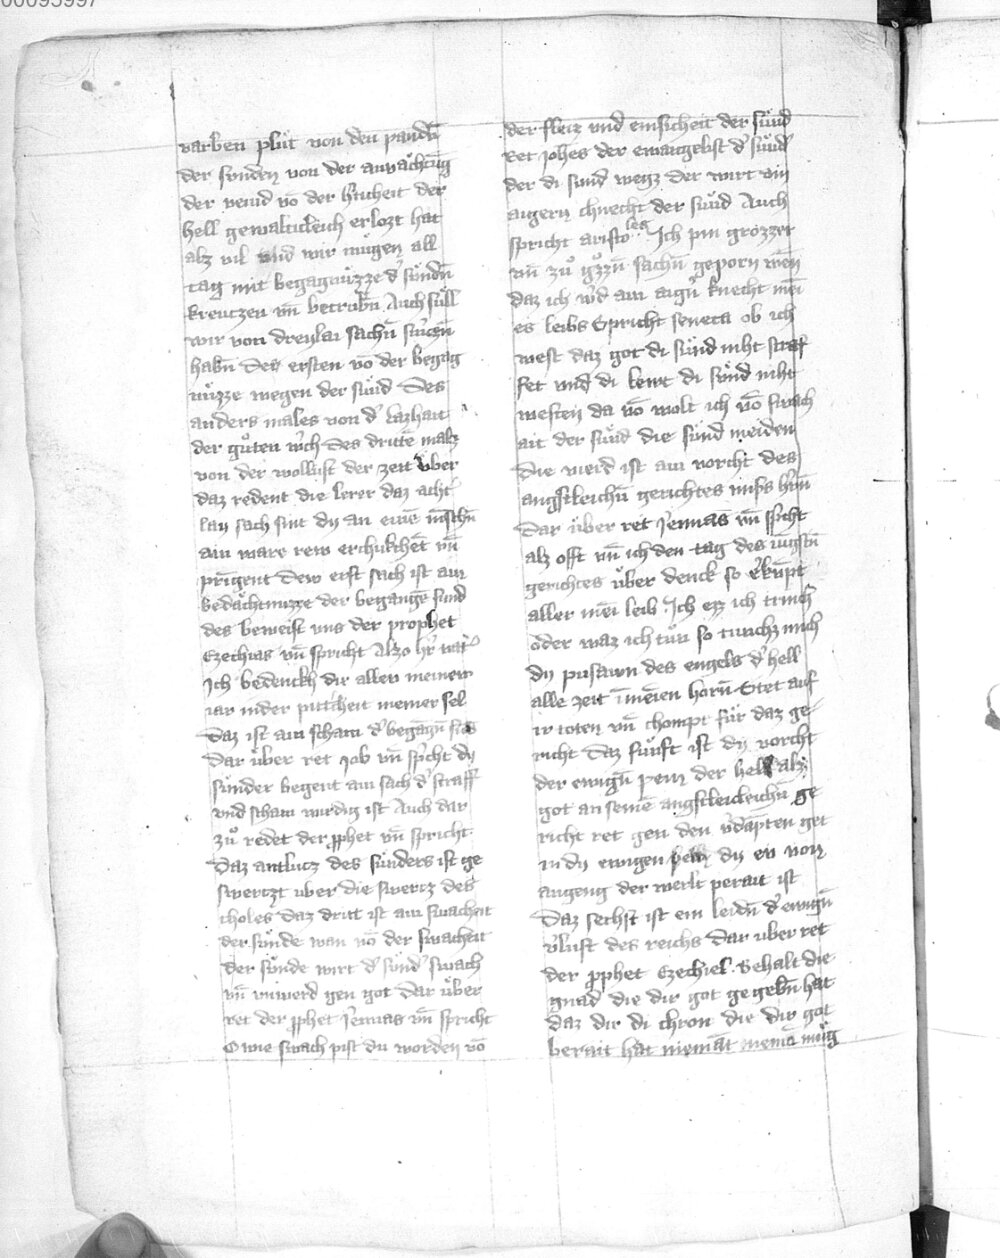 00095997
varben plůt von den pandn̄
der sunden von der anuächtūg
der veind vō der hticheit der
hell gewalticleich erlozt hat
alz vil und wir mügen all
tag mit begagnüzze d' sündn̄
kreutzen vn̄ betrübn̄ Auch süll
wir von dreylai sachn̄ smczn̄
habn̄ Des ersten vō der begag
nüzze wegen der sünd Des
anders males von d' lazhait
der gůten wch Des drittē malz
von der wollust der zeit Vber
daz redent die lerer daz acht
lay sach sint dy an eim̄ mēschn̄
ain ware rew erchukchēt vn̄
pringent Dew erst sach ist ain
bedächtnuzze der begangē sund
des beweist uns der prophet
Ezechias vn̄ spricht Alzo hr̄ wa
Ich bedenckh dir aller meiner
iar in der pittcheit meiner sel
Daz ist ain scham d' begāgn̄ sūd
Dar über ret Job vn̄ spcht dy
sünder begert ain sach d' straff
vnd scham wirdig ist Auch dar
zů redet der pphet vn̄ spricht
Daz antlucz des sünders ist ge
swertzt uber die swertz des
choles Daz dritt ist ain swacheit
der sünde wan vō der swacheit
der sünde wirt d' sünd' swach
vn̄ vnwerd gen got Dar über
ret der pphet Jeremias vn̄ spricht
O wie swach pist du worden vō
der fleiz vnd emsicheit der sünd
Ret Johes der ewangelist d' sünd'
der di sünd wegz der wirt ain
aigern chnecht der sünd Auch
spricht aristoles Ich pin grözzer
vn̄ zů gzzn̄ sachn̄ geporn wen̄
daz ich wd ain aign̄ knecht mei
es leibs Spricht seneca ob ich
west daz got di sünd niht straf
fet vnd di lewt di sünd niht
westen da vō wolt ich vō swach
ait der sünd die sünd meiden
Die vierd ist ain vorcht des
angstleichn̄ gerichtes unss hrn̄
Dar über ret Jeremias vn̄ spcht
alz offt vn̄ ich den tag des iūgstn̄
gerichtes über denck so erkūpt
aller mēi leib Ich ezz ich trinch
oder waz ich tün so tunchz mich
dy pusawn des engels d' hell
alle zeit in meīen horn̄ Stet auf
ir toten vn̄ chompt für daz ge
richt Daz fünft ist dy vorcht
der ewign̄ pein der hell alz
got an seinē angstleicleichn̄ ge
richt ret gen den v'dāpten get
in dy ewigen hell dy ew von
angeng der werlt perait ist
Daz sechst ist ein leidn̄ d' ewign̄
v'lust des reichs Dar uber ret
der pphet Ezechiel Behalt die
gnad die dir got gegebn̄ hat
daz dir di chron die dir got
berait hat niemāt nemē müg